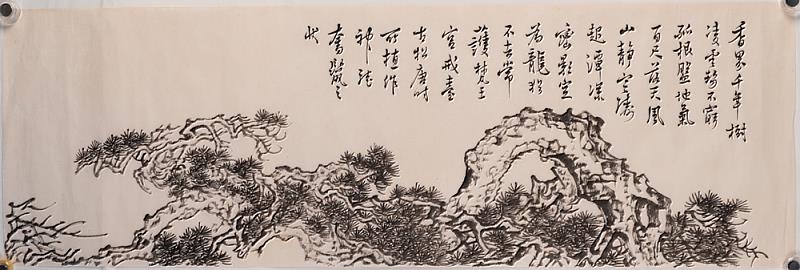 香界千年樹
凌雲勢不窮
孤根盤地氣
百尺落天風
山靜空濤
起潭深
密影空
為龍猶
不去常
護梵王
宮戒臺
古松唐時
所植作
張
奮鬣之
狀